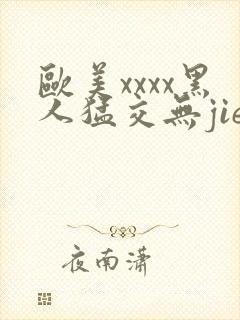 歐美xxxx黑
人猛交無jie
夜南潇